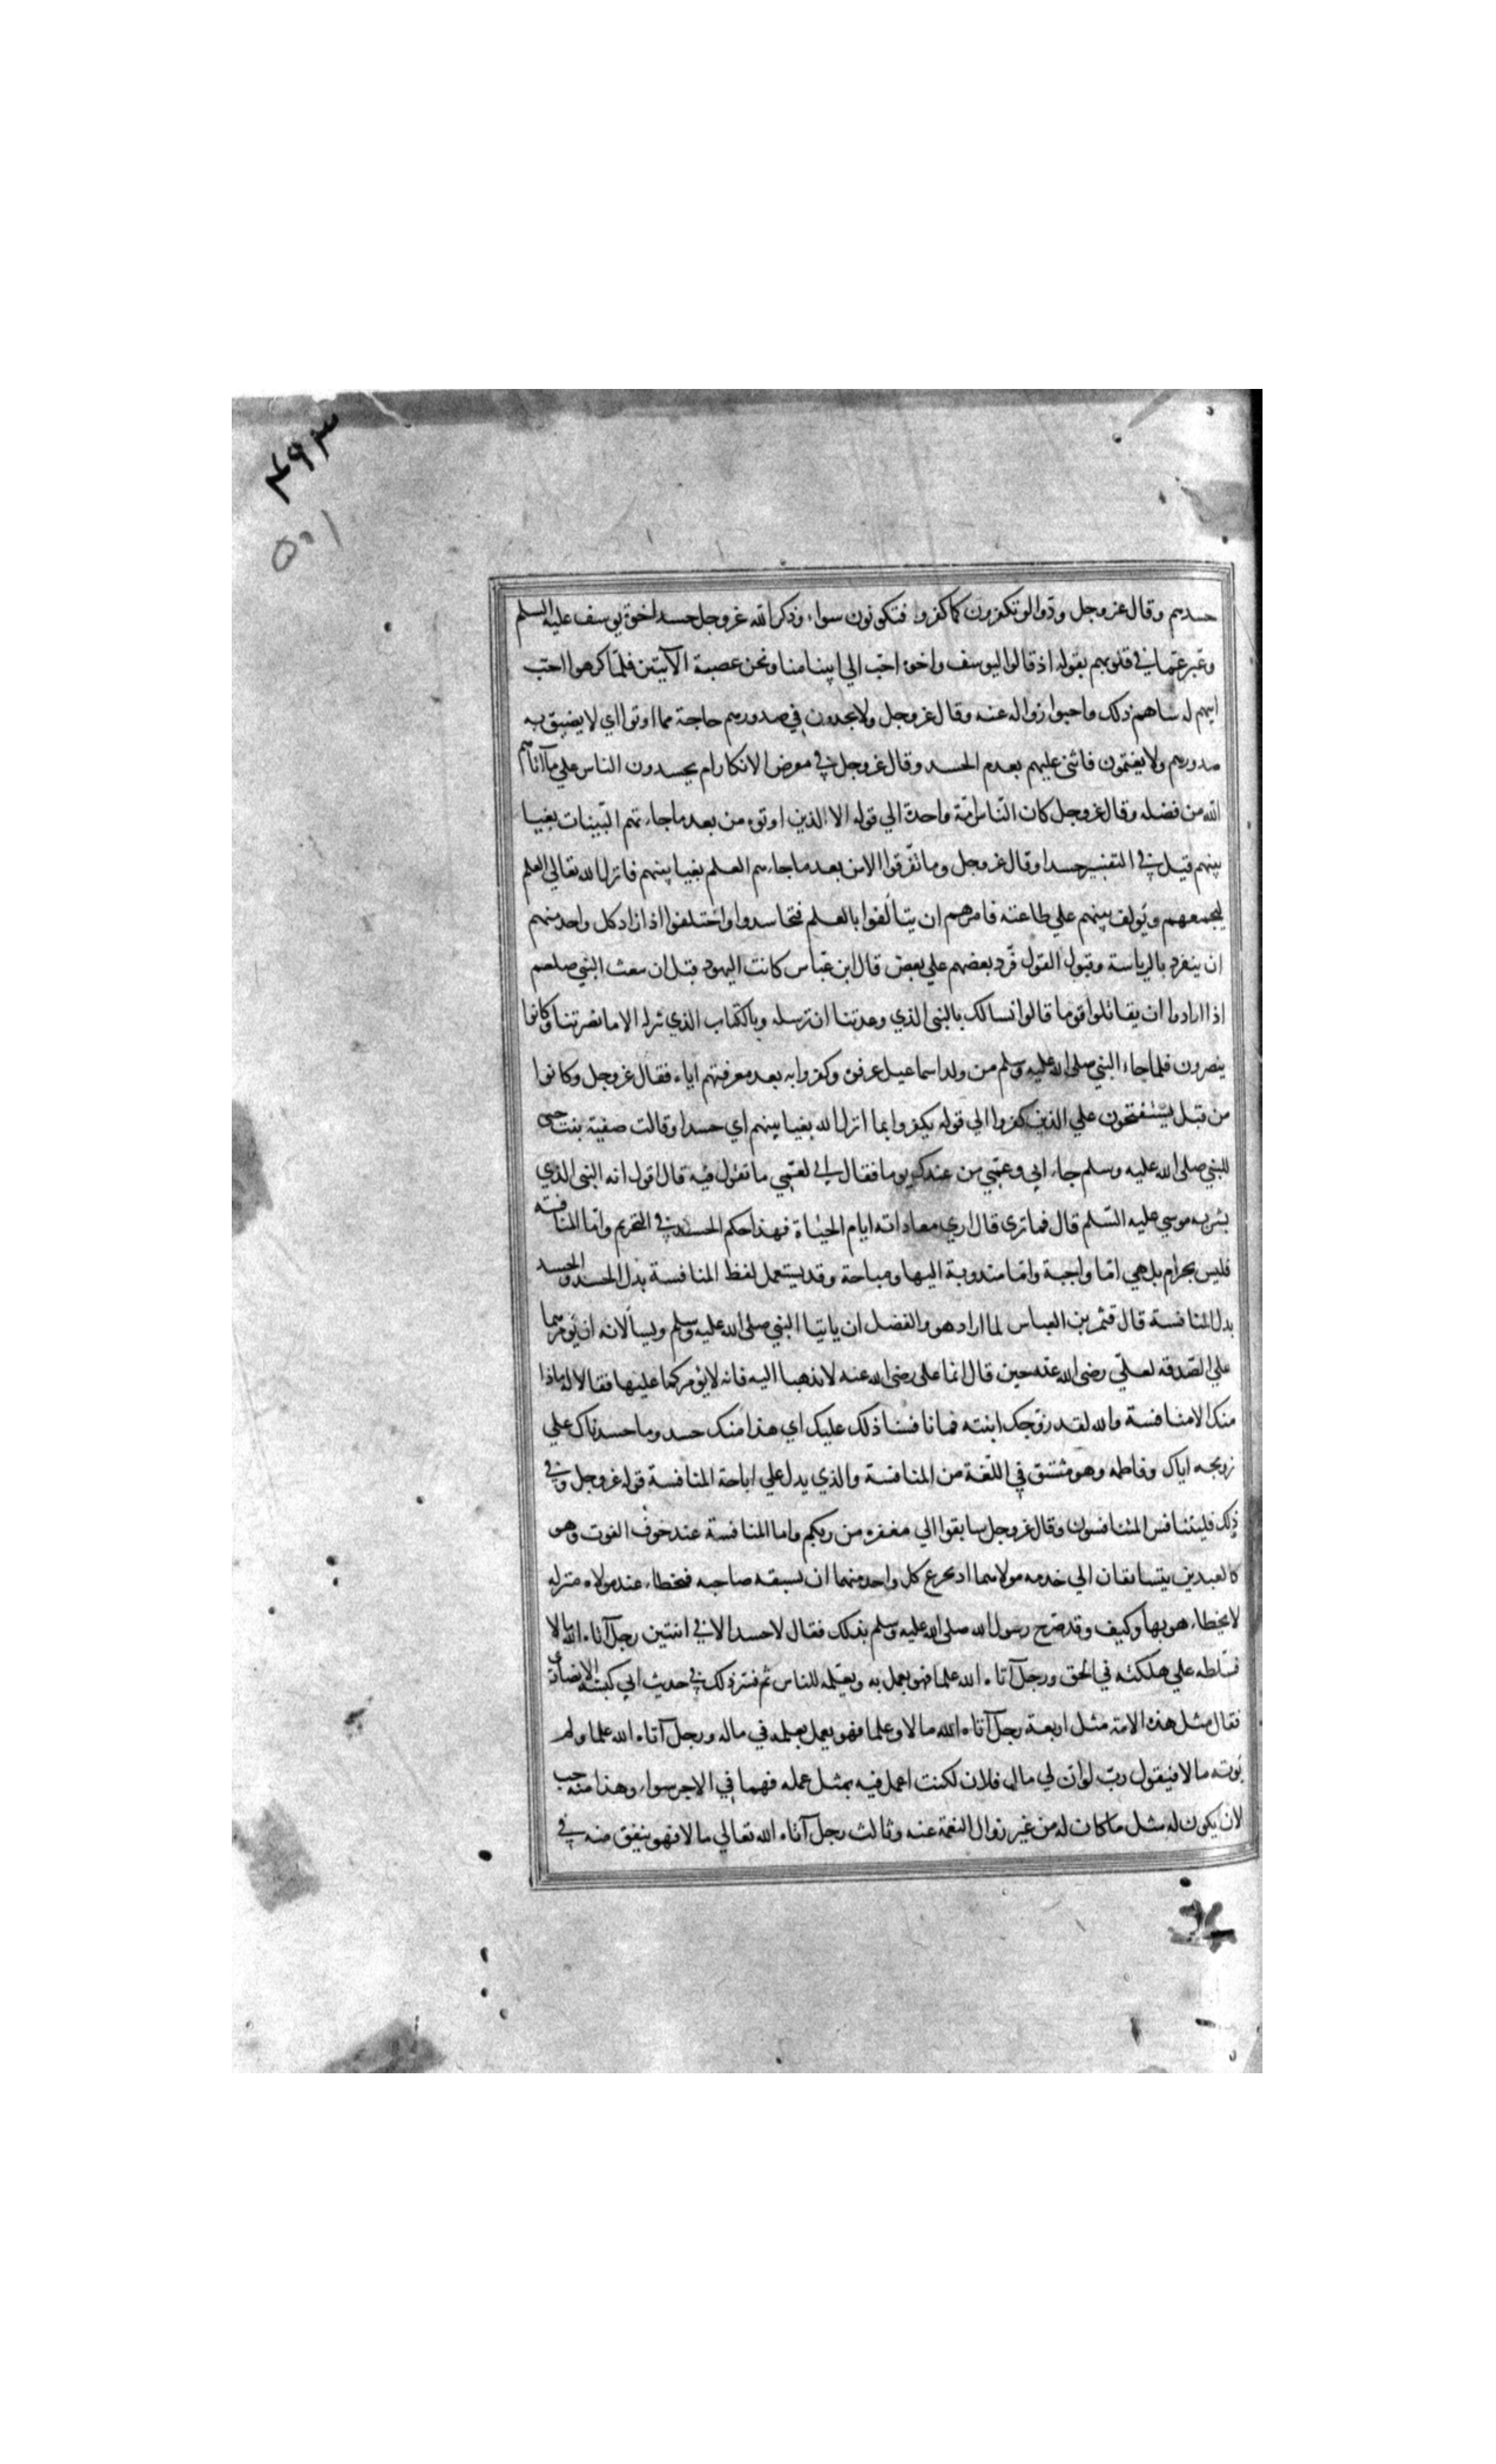 ۴۹۳
حسدهم وقال عزوجل ودّوا لو تكفرون كما كفروا فتكونون سواء وذكر الله عزوجل حسد اخوة يوسف عليه السلم
وعبر عما في قلوبهم بقوله اذ قالوا ليوسف واخوه احب الي ابينا منا ونحن عصبة الآيتين فلما كرهوا احب
ابيهم له ساهم ذلك واحبوا زواله عنه وقال عزوجل ولا يجدون في صدورهم حاجة مما اوتوا اي لا يضيق به
صدورهم ولا يغتمون فاثني عليهم بعدم الحسد وقال عزوجل في معرض الانكار ام يحسدون الناس علي ما آتاهم
الله من فضله وقال عزوجل كان الناس امّة واحدة الي قوله الا الذين اوتوه من بعد ما جاءتهم البّينات بغيا
بينهم قيل في التفسير حسدا وقال عزوجل وما تفّرقوا الا من بعد ما جاءهم العلم بغيا بينهم فانزل الله تعالي العلم
ليجمعهم ويؤلف بينهم علي طاعته فامرهم ان يتألفوا بالعلم فتحاسدوا واختلفوا اذ اراد كل واحد منهم
ان ينفرد بالرياسة وقبول القول فّرد بعضهم علي بعض قال ابن عباس كانت اليهود قبل ان سعث النبي صلعم
اذا ارادوا ان يقاتلوا قوما قالوا نسالك بالنبي الذي وعدتنا ان ترسله وبالكتاب الذي تنزله الا ما نصرتنا وكانوا
ينصرون فلما جاء النبي صلى الله عليه وسلم من ولد اسماعيل عرفوه وكفروا به بعد معرفتهم اياه فقال عزوجل وكانوا
من قبل يستفتحون علي الذين كفروا الي قوله يكفروا بما انزل الله بغيا بينهم اي حسدا وقالت صفية بنت حيى
للنبي صلى الله عليه وسلم جاء ابي وعمّي من عندك يوما فقال ابي لعمّي ما تقول فيه قال اقول انه النبي الذي
بشر به موسي عليه السّلم قال فما ترى قال اري معاداته ايام الحياة فهذا حكم الحسد في التحريم واما المنافسة
فليس بحرام بل هي امّا واجبة وامّا مندوبة اليها ومباحة وقد يستعمل لفظ المنافسة بدل الحسد والحسد
بدل المنافسة قال قثم بن العباس لما اراد هو والفضل ان ياتيا النبي صلى الله عليه وسلم ويسألانه ان يؤمرهما
علي الصّدقه لعلّي رضى الله عنه حين قال لهما على رضى الله عنه لا تذهبا اليه فانه لا يؤمركما عليها فقالا له ماذا
منك الا منافسة والله لقد زوّجك ابنته فما نافسنا ذلك عليك اي هذا منك حسد وما حسدناك علي
تزويجه اياك وفاطمه وهو مشتق في اللّغة من المنافسة والذي يدل علي اباحة المنافسة قوله عزوجل وفي
ذلك فليتنافس المتنافسون وقال عزوجل سابقوا الي مغفره من ربكم واما المنافسة عند خوف الفوت وهو
كالعبدين يتسابقان الي خدمه مولاهما اذ يجزع كل واحد منهما ان يسبقه صاحبه فيحظاء عند مولاه منزله
لا يحظاء هو بها وكيف وقد صّرح رسول الله صلى الله عليه وسلم بذلك فقال لا حسد الا في اثنتين رجل آتاه الله مالا
فسّلطه علي هلكته في الحق ورجل آتاه الله علما فهو يعمل به ويعلمه للناس ثم فسّر ذلك في حديث ابي كبشه الانصارى
فقال مثل هذه الامة مثل اربعة رجل آتاه الله مالا وعلما فهو يعمل بعلمه في ماله ورجل آتاه الله علما ولم
يُوته مالا فيقول ربّ لو ان لي مال فلان لكنت اعمل فيه بمثل عمله فهما في الاجر سواء وهذا منه حب
لان يكون له مثل ما كان له من غير زوال النعمة عنه وثالث رجل آتاه الله تعالي مالا فهو ينفق منه في